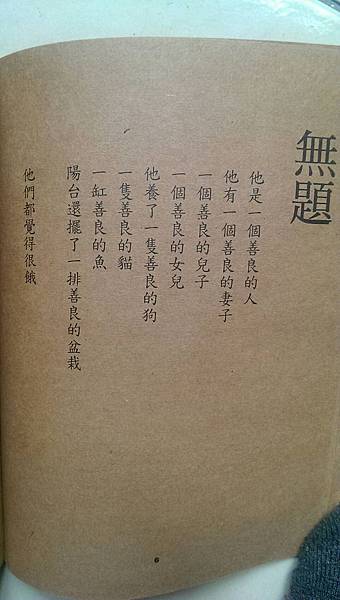 無題
他是一個善良的人
他有一個善良的妻子
一個善良的兒子
一個善良的女兒
他養了一隻善良的狗
一隻善良的貓
一缸善良的魚
陽台還擺了一排善良的盆栽
他們都覺得很餓
6